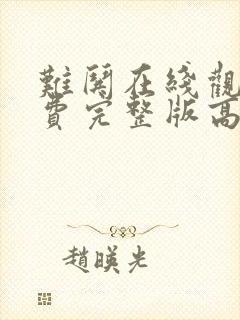 難閑在綫觀
費完整版高
趙暎光